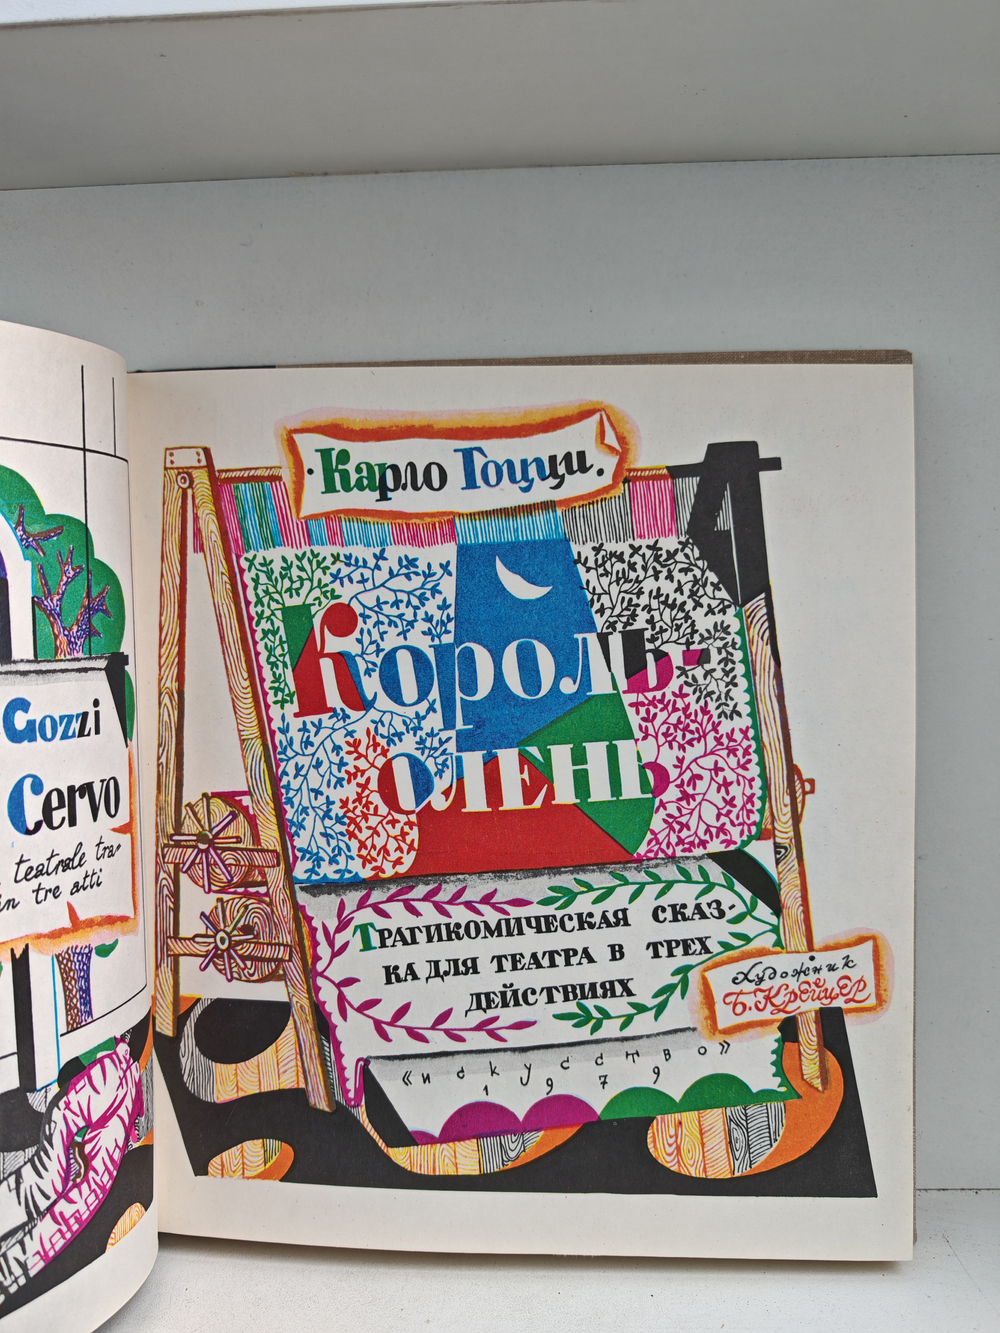 Gozzi
Cervo
teatrale tra-
in tre atti
·Карло Гоцци.
Король-
олень
Трагикомическая сказ-
ка для театра в трех
действиях
художник
Б. Крейцер
«искусство»
1979